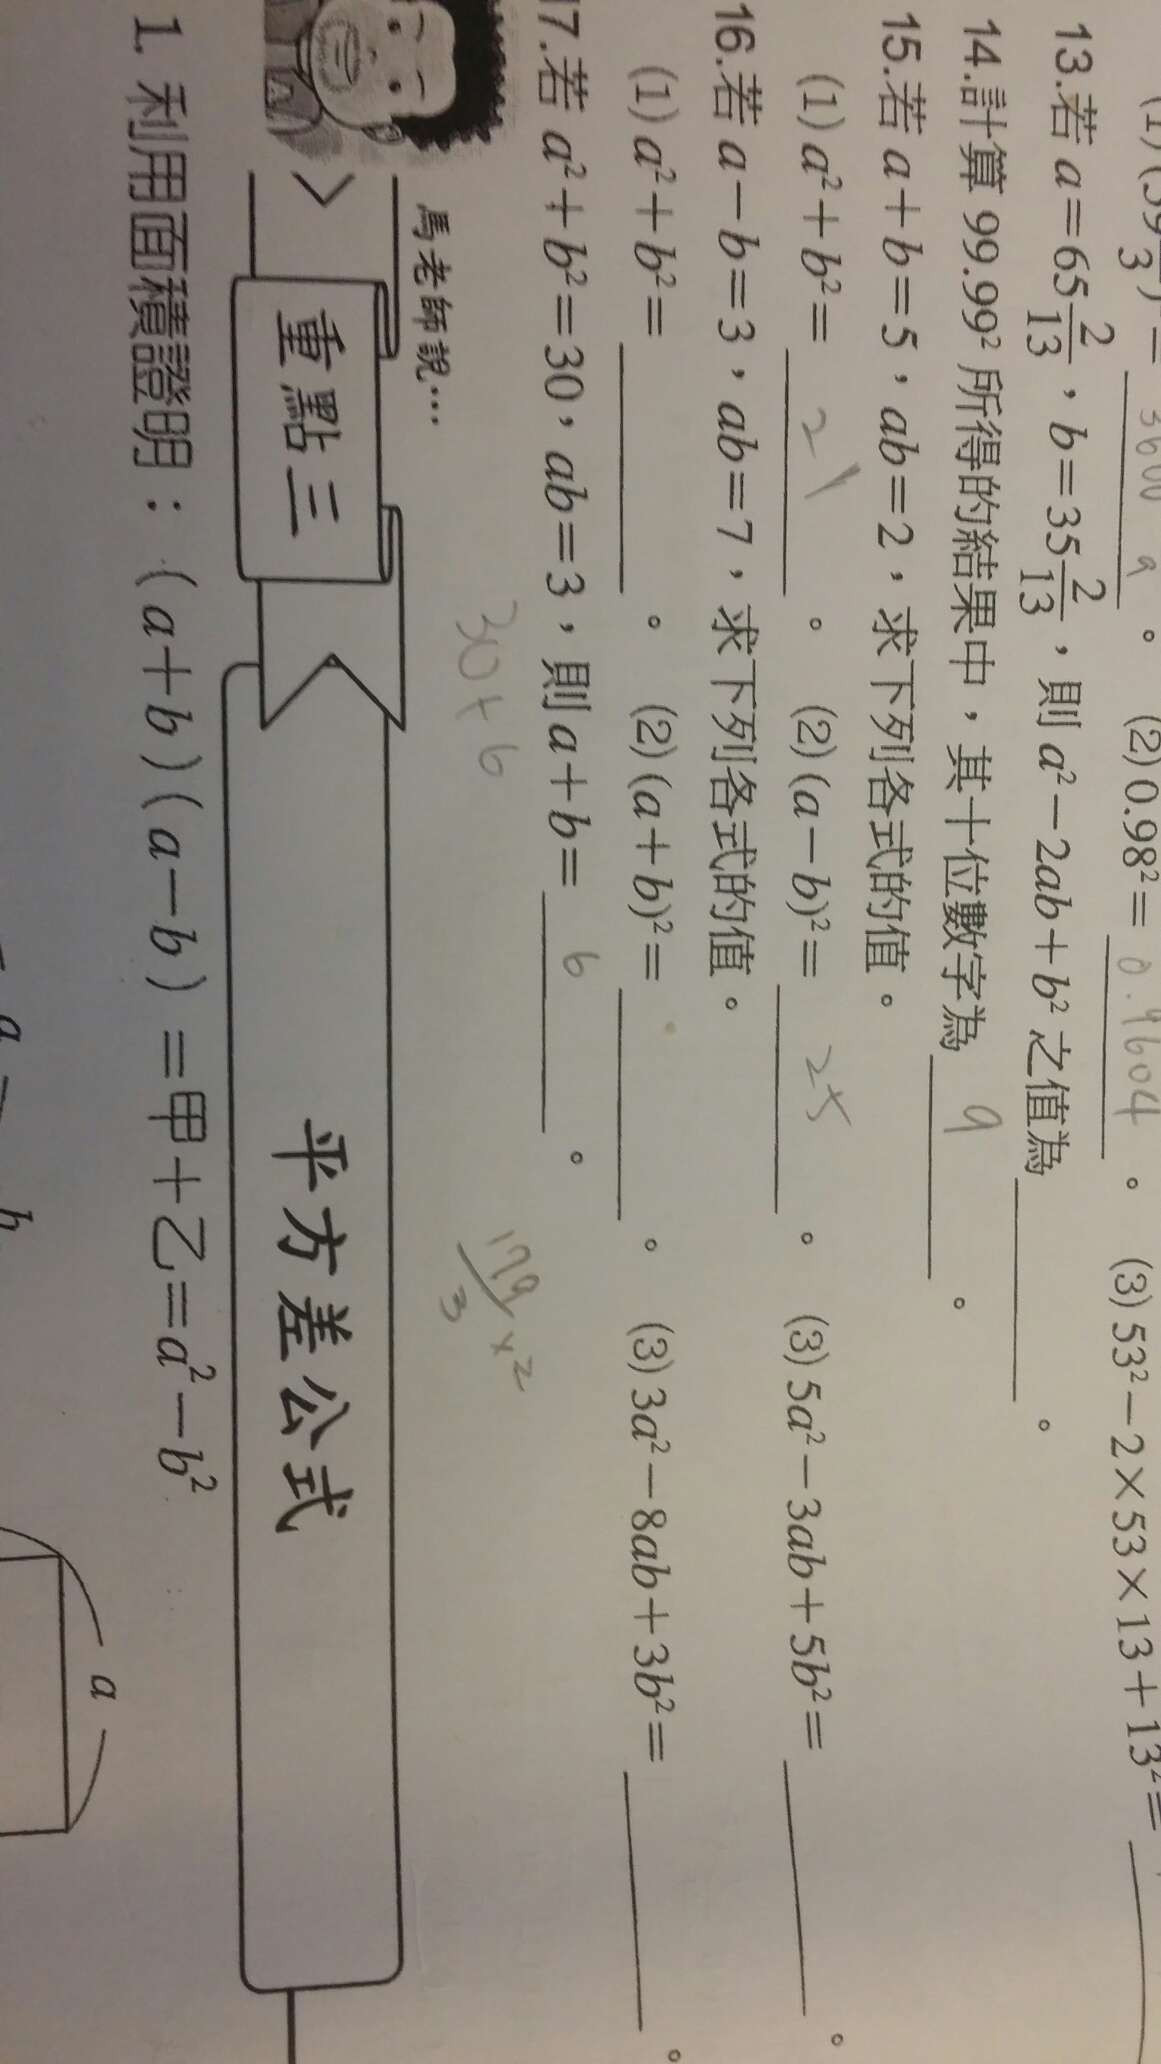 (2) 0.98²= 0.9604 。 (3) 53²－2×53×13＋13²=
13.若 a=65 2/13，b=35 2/13，則 a²－2ab＋b² 之值為 。
14.計算 99.99² 所得的結果中，其十位數字為 9 。
15.若 a＋b=5，ab=2，求下列各式的值。
(1) a²＋b²= 21 。 (2) (a－b)²= 25 。 (3) 5a²－3ab＋5b²= 。
16.若 a－b=3，ab=7，求下列各式的值。
(1) a²＋b²= 。 (2) (a＋b)²= 。 (3) 3a²－8ab＋3b²= 。
17.若 a²＋b²=30，ab=3，則 a＋b= 6 。
30+6
179/3 ×2
馬老師說…
重點三 平方差公式
1. 利用面積證明：(a＋b)(a－b)=甲＋乙=a²－b²
a
a b